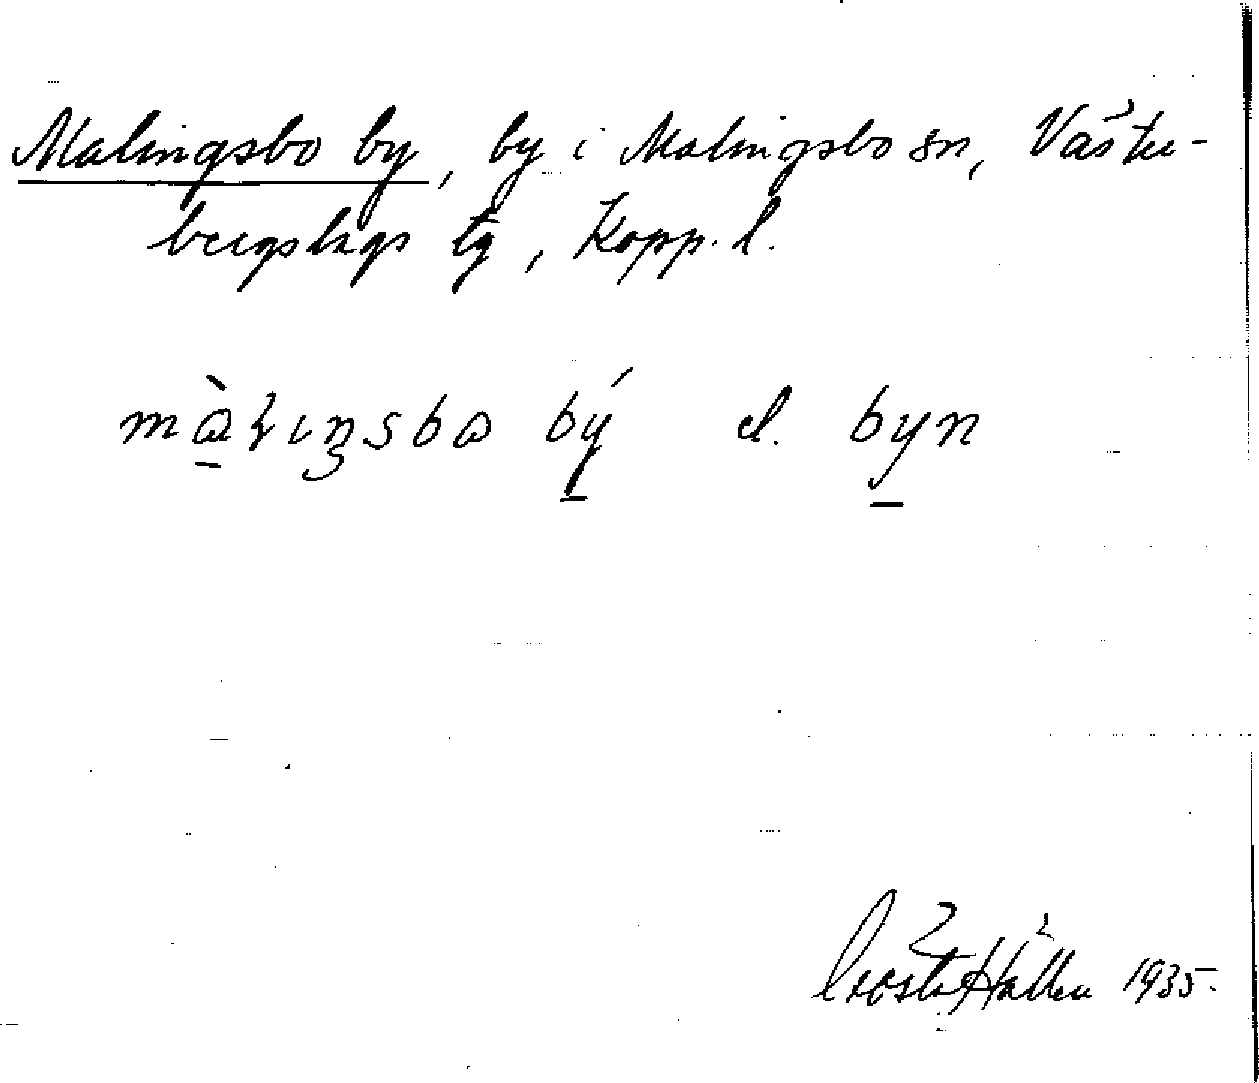 Malingsbo by, by i Malingsbo sn, Väster-
bergslags tg, Kopp. l.
màlıŋsbo bý el. byn
Gösta Hallén 1935.